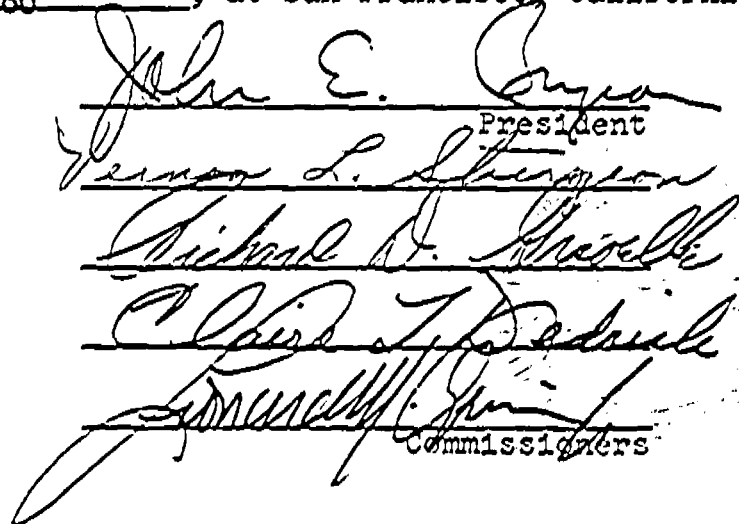 80, at San Francisco, Californi
John E. Bryson
President
Vernon L. Sturgeon
Richard D. Gravelle
Claire T. Dedrick
Leonard M. Grimes
Commissioners